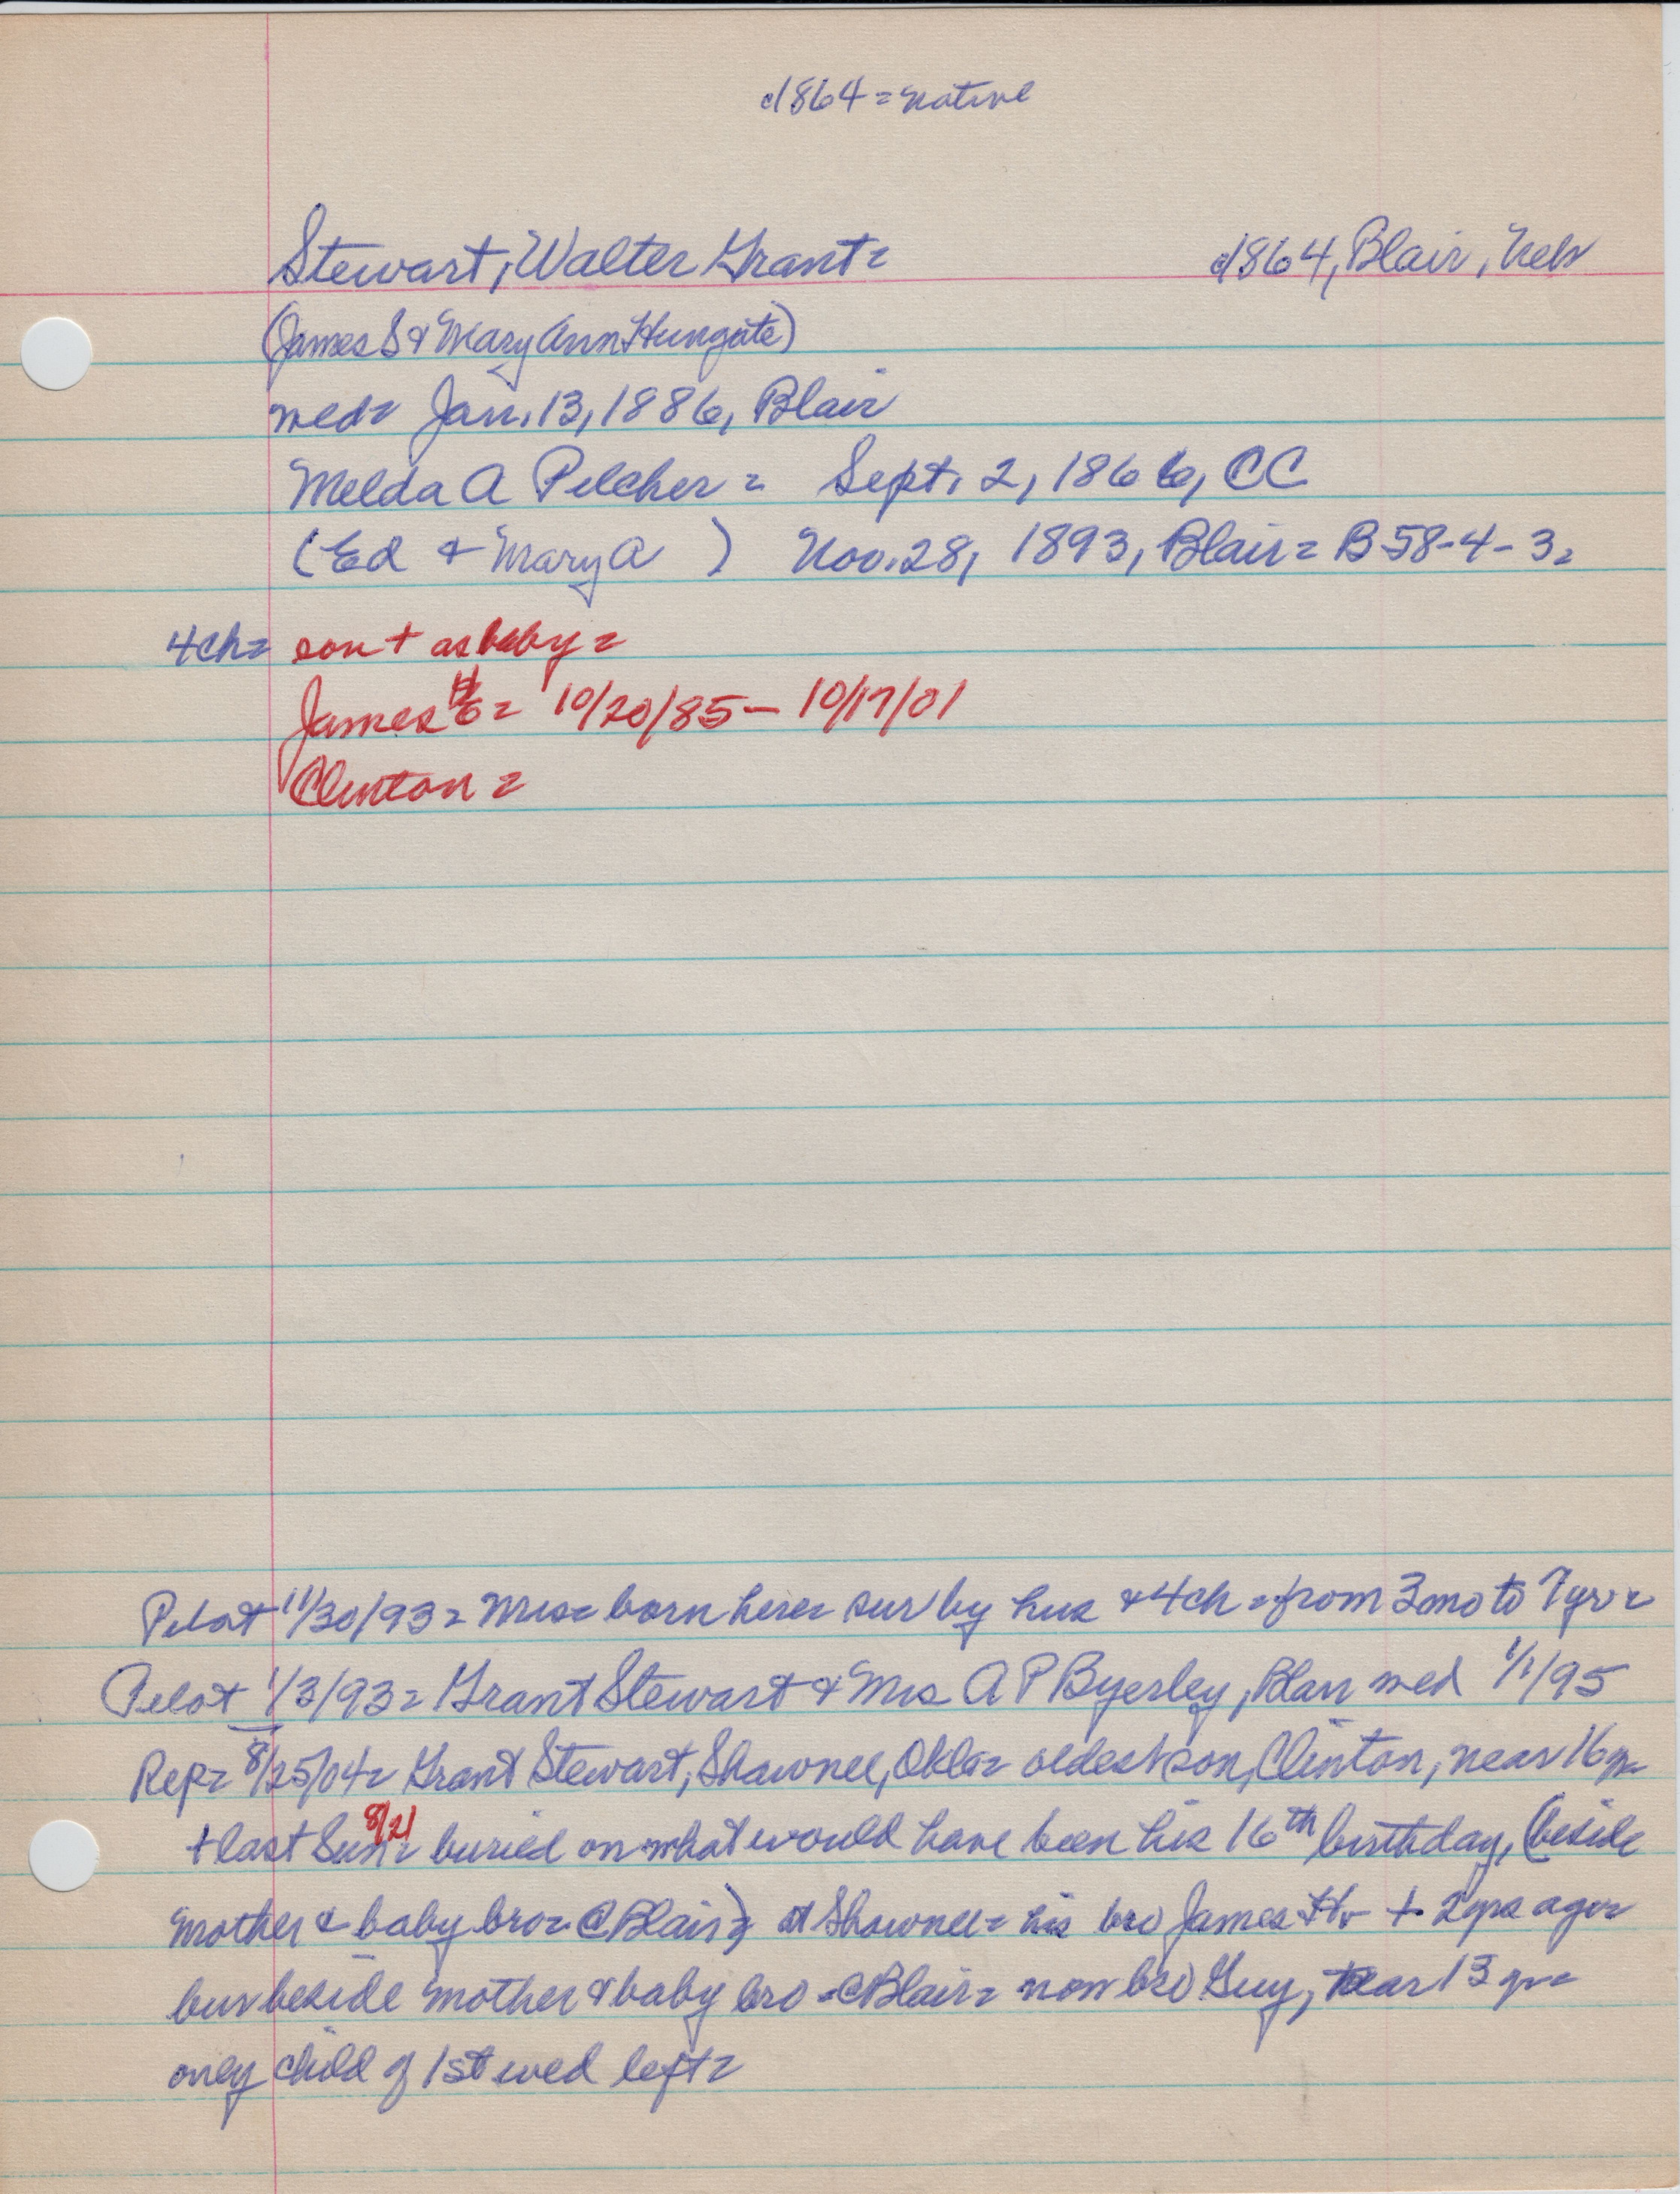 c1864 = native
Stewart, Walter Grant = c1864, Blair, Neb
(James S & Mary Ann Hungate)
wed = Jan. 13, 1886, Blair
Melda A Pilcher = Sept. 2, 1866, CC
(Ed & Mary A ) Nov. 28, 1893, Blair = B 58-4-3 =
4ch = son + as baby =
James = 10/20/85 - 10/17/01
Clinton =
Pilot 11/30/93 = Mrs = born here = sur by hus & 4ch = from 3mo to 7yr =
Pilot 1/3/93 = Grant Stewart & Mrs A P Byerley, Blair wed 1/1/95
Rep = 8/25/04 = Grant Stewart, Shawnee, Okla = oldest son, Clinton, near 16yr
+ last Sun = 8/21 buried on what would have been his 16th birthday, (beside
mother & baby bro = @ Blair) at Shawnee = his bro James H + 2yrs ago =
bur beside mother & baby bro - @ Blair = now bro Guy, near 13 yr =
only child of 1st wed left =